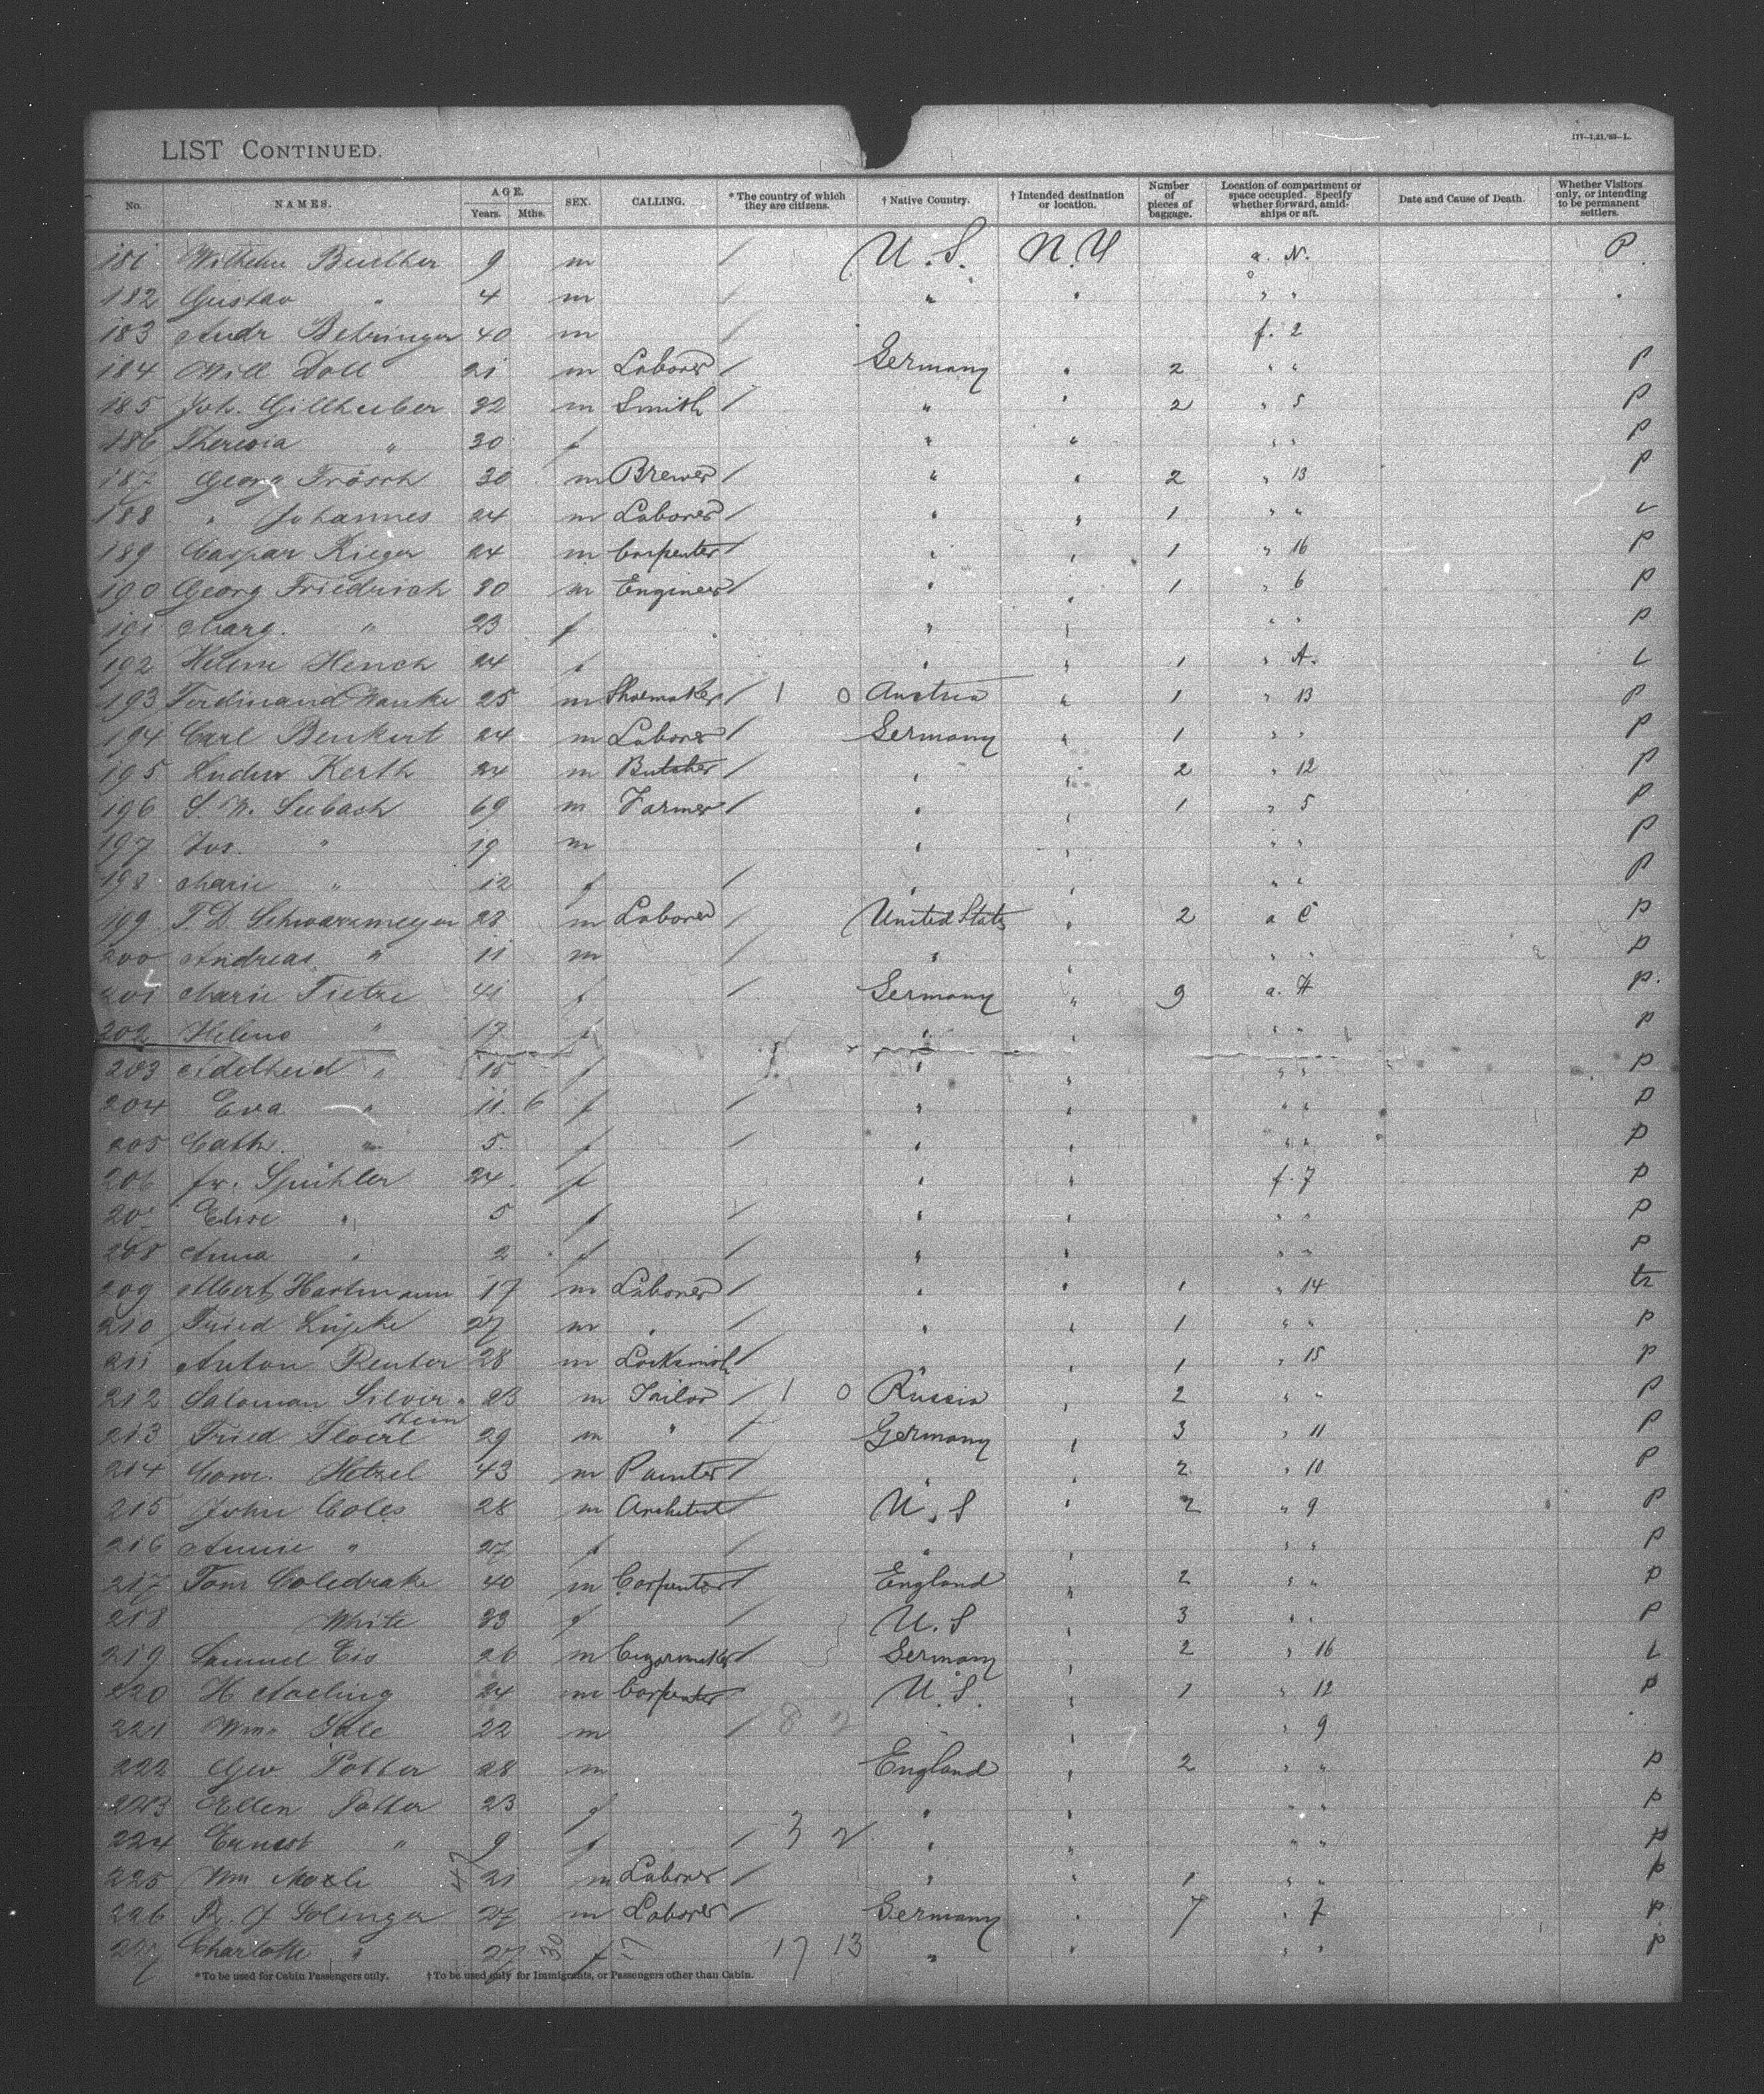 LIST CONTINUED.
177-1.21.'93-L.
No. NAMES. AGE. Years. Mths. SEX. CALLING. * The country of which they are citizens. † Native Country. † Intended destination or location. Number of pieces of baggage. Location of compartment or space occupied. Specify whether forward, amid-ships or aft. Date and Cause of Death. Whether Visitors only, or intending to be permanent settlers.
181 Wilhelm 9 m / U.S. N.Y a. N. P.
182 Gustav " 4 m / " " " "
183 Andr Behringer 40 m / f. 2
184 Will Doll 21 m Laborer / Germany " 2 " " P
185 Joh. Gillhuber 32 m Smith / " " 2 " 5 P
186 Theresia " 30 f " " " " P
187 Georg Frösch 30 m Brewer / " " 2 " 13 P
188 " Johannes 24 m Laborer / " " 1 " "
189 Caspar Rieger 24 m Carpenter / " " 1 " 16 P
190 Georg Friedrich 30 m Engineer / " " 1 " 6 P
191 Marg. " 23 f " " " " P
192 Helene Hench 24 f " " 1 " A.
193 Ferdinand Wanke 25 m Shoemaker / 1 0 Austria " 1 " 13 P
194 Carl Benkert 24 m Laborer / Germany " 1 " " P
195 Ludw Kerth 24 m Butcher / " " 2 " 12 P
196 S. W. Seebach 69 m Farmer / " " 1 " 5 P
197 Jos. " 19 m " " " " P
198 Marie " 12 f / " " " " P
199 F. D. Schwarzmeyer 28 m Laborer / United States " 2 a C P
200 Andreas " 11 m / " " " " P
201 Marie Tietze 41 f / Germany " 9 a. H P.
202 Helene " 17 f " " " " P
203 Adelheid " 15 f " " " " P
204 Eva " 11. 6 f / " " " " P
205 Cath. " 5. f / " " " " P
206 fr. Spühler 24. f " " f. 7 P
207 Elise " 5 f / " " " " P
208 Anna " 2 f / " " " " P
209 Albert Hartmann 17 m Laborer / " " 1 " 14 tr
210 Fried Lüpke 27 m " / " " 1 " " P
211 Anton Reuter 28 m Locksmith / " " 1 " 15 P
212 Saloman Silverstein 23 m Tailor / 1 0 Russia " 2 " " P
213 Fried 29 m " / Germany " 3 " 11 P
214 Hetzel 43 m Painter / " " 2 " 10 P
215 John Coles 28 m Architect / U.S " 2 " 9 P
216 Annie " 27 f / " " " " P
217 Tom Coledrake 40 m Carpenter / England " 2 " " P
218 White 33 f / U.S " 3 " " P
219 Samuel Eis 26 m Cigarmaker / Germany " 2 " 16
220 H 24 m Carpenter U.S. " 1 " 12 P
221 Wm. 22 m / 8 2 " " 9
222 Geo Potter 28 m England " 2 " " P
223 Ellen Potter 23 f " " " " P
224 Ernest " 9 f / 3 2 " " " " P
225 Wm 21 m Laborer / " " 1 " " P
226 R. J Solinger 27 m Laborer / Germany " 7 " 7 P.
227 Charlotte " 27 30 f 17 17 13 " " " " P
*To be used for Cabin Passengers only. †To be used only for Immigrants, or Passengers other than Cabin.